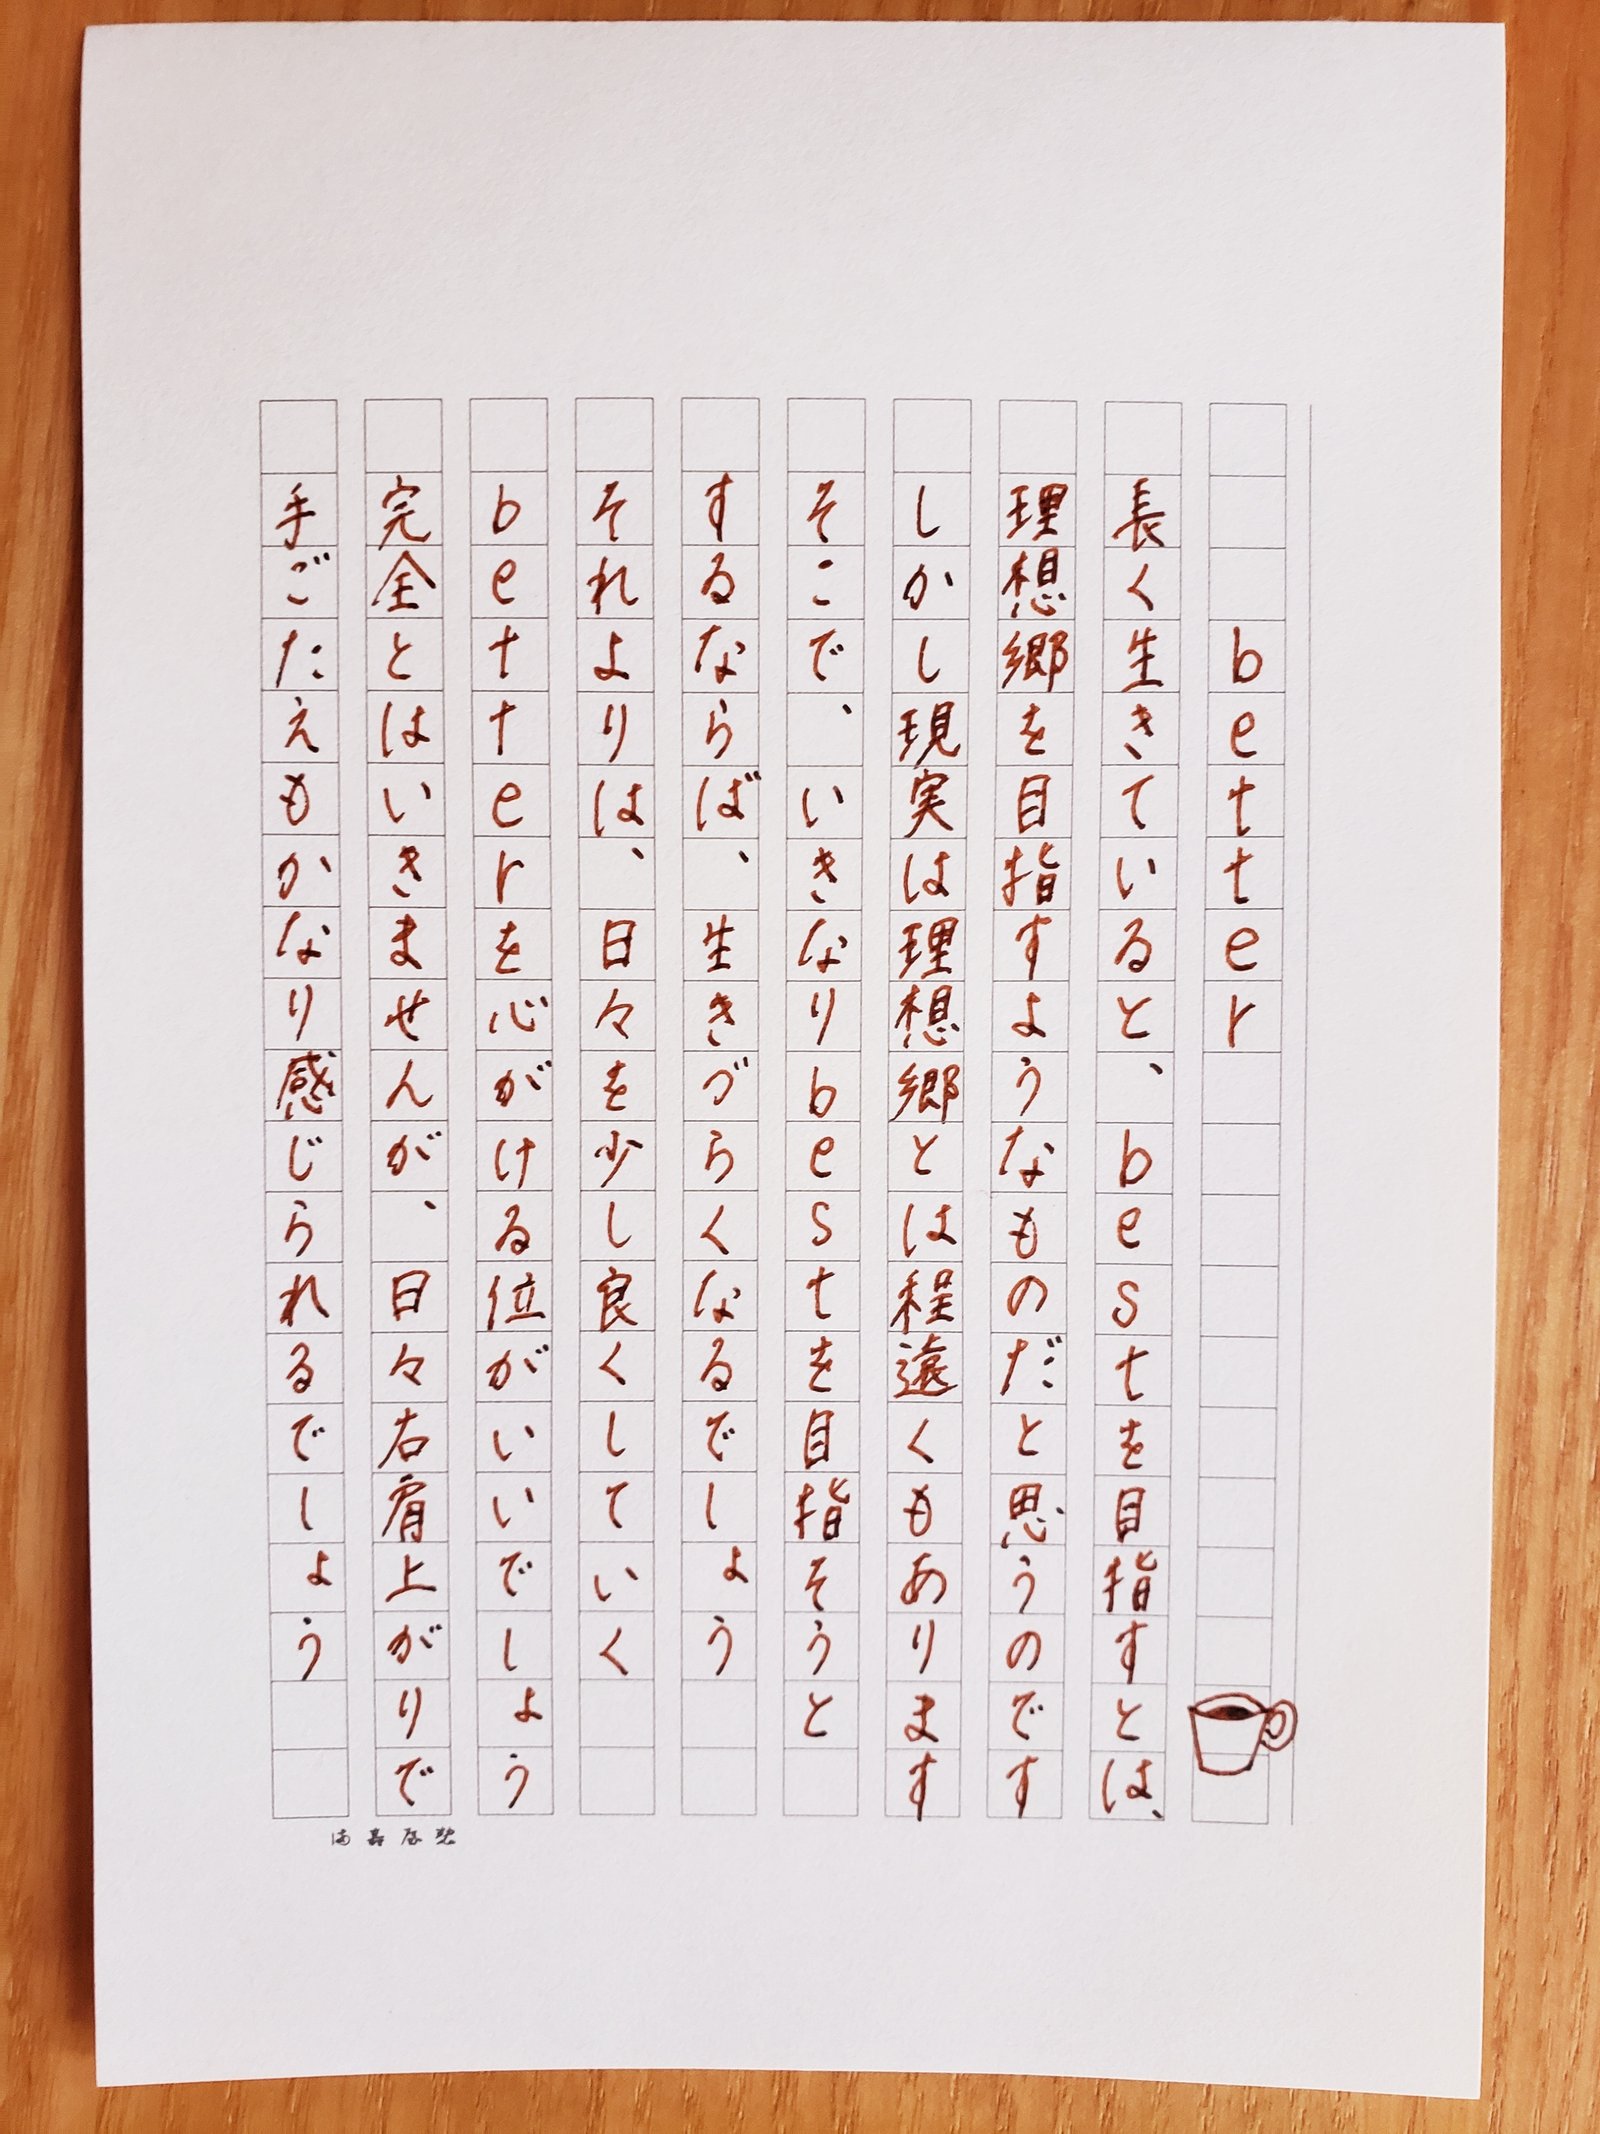 better
長く生きていると、bestを目指すとは、
理想郷を目指すようなものだと思うのです
しかし現実は理想郷とは程遠くもあります
そこで、いきなりbestを目指そうと
するならば、生きづらくなるでしょう
それよりは、日々を少し良くしていく
betterを心がける位がいいでしょう
完全とはいきませんが、日々右肩上がりで
手ごたえもかなり感じられるでしょう